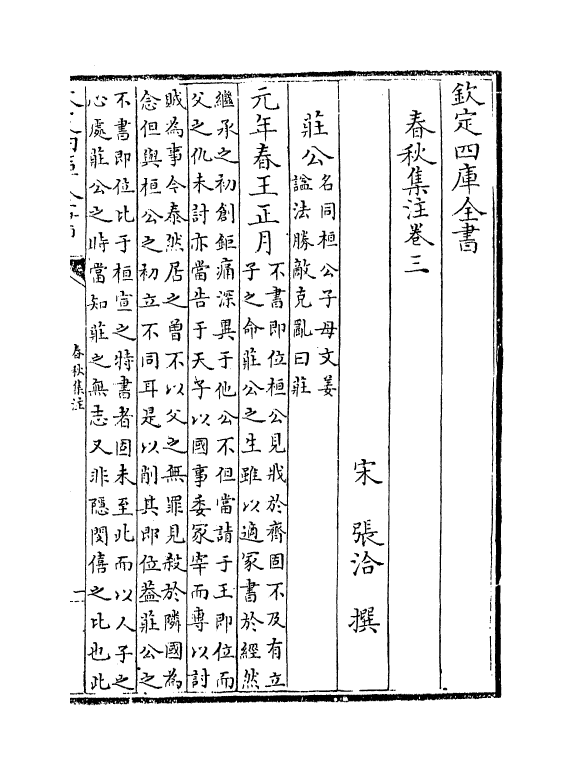 欽定四庫全書
春秋集注卷三
宋 張洽 撰
莊公名同桓公子母文姜
諡法勝敵克亂曰莊
元年春王正月不書即位桓公見戕於齊固不及有立
子之命莊公之生雖以適冢書於經然
繼承之初創鉅痛深異于他公不但當請于王即位而
父之仇未討亦當告于天子以國事委冢宰而專以討
賊為事今泰然居之曾不以父之無罪見殺於隣國為
念但與桓公之初立不同耳是以削其即位葢莊公之
不書即位比于桓宣之特書者固未至此而以人子之
心處莊公之時當知莊之無志又非隱閔僖之比也此
春秋集注
一